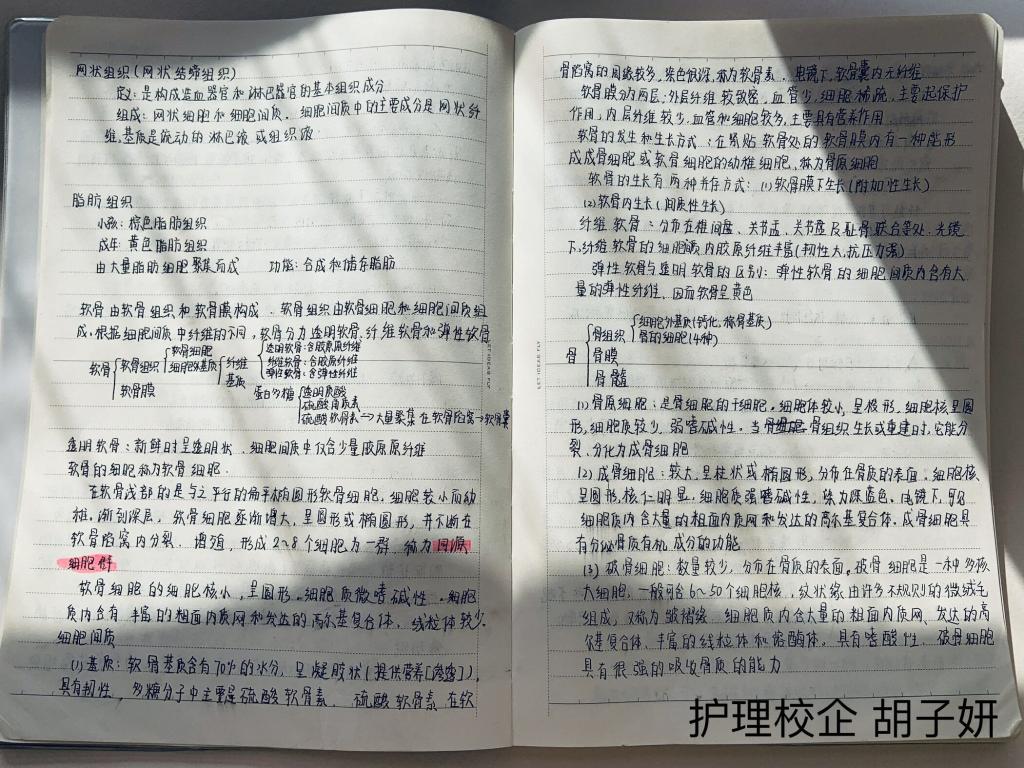 网状组织(网状结缔组织)
定义:是构成造血器官和淋巴器官的基本组织成分
组成:网状细胞和细胞间质.细胞间质中的主要成分是网状纤
维,基质是流动的淋巴液或组织液
脂肪组织
小孩:棕色脂肪组织
成年:黄色脂肪组织
由大量脂肪细胞聚集而成 功能:合成和储存脂肪
软骨由软骨组织和软骨膜构成.软骨组织由软骨细胞和细胞间质组
成.根据细胞间质中纤维的不同,软骨分为透明软骨.纤维软骨和弹性软骨
软骨
软骨组织
软骨细胞
细胞外基质
纤维
透明软骨:含胶原原纤维
纤维软骨:含胶原纤维
弹性软骨:含弹性纤维
基质
软骨膜
蛋白多糖
透明质酸
硫酸角质素
硫酸软骨素→大量聚集在软骨陷窝→软骨囊
透明软骨:新鲜时呈透明状.细胞间质中仅含少量胶原原纤维
软骨的细胞称为软骨细胞.
在软骨浅部的是与之平行的扁平椭圆形软骨细胞,细胞较小而幼
稚.渐到深层,软骨细胞逐渐增大,呈圆形或椭圆形,并不断在
软骨陷窝内分裂.增殖,形成2~8个细胞为一群,称为同源
细胞群
软骨细胞的细胞核小,呈圆形.细胞质微嗜碱性.细胞
质内含有丰富的粗面内质网和发达的高尔基复合体,线粒体较少.
细胞间质
(1)基质:软骨基质含有70%的水分,呈凝胶状(提供营养[渗透]),
具有韧性,多糖分子中主要是硫酸软骨素.硫酸软骨素在软
骨陷窝的周缘较多,染色很深,称为软骨囊.电镜下,软骨囊内无纤维
软骨膜分为两层:外层纤维较致密,血管少,细胞稀疏,主要起保护
作用,内层纤维较少,血管和细胞较多,主要具有营养作用
软骨的发生和生长方式:在紧贴软骨处的软骨膜内有一种能形
成成骨细胞或软骨细胞的幼稚细胞,称为骨原细胞
软骨的生长有两种并存方式:(1)软骨膜下生长(附加性生长)
(2)软骨内生长(间质性生长)
纤维软骨:分布在椎间盘、关节盂、关节盘及耻骨联合等处.光镜
下,纤维软骨的细胞间质内胶原纤维丰富(韧性大,抗压力强)
弹性软骨与透明软骨的区别:弹性软骨的细胞间质内含有大
量的弹性纤维,因而软骨呈黄色
骨
骨组织
细胞外基质(钙化,称骨基质)
骨的细胞(4种)
骨膜
骨髓
(1)骨原细胞:是骨细胞的干细胞.细胞体较小,呈梭形,细胞核呈圆
形,细胞质较少,弱嗜碱性。当骨组织生长或重建时,它能分
裂、分化为成骨细胞
(2)成骨细胞:较大,呈柱状或椭圆形,分布在骨质的表面.细胞核
呈圆形,核仁明显.细胞质强嗜碱性,染为深蓝色.电镜下,可见
细胞质内含大量的粗面内质网和发达的高尔基复合体.成骨细胞具
有分泌骨质有机成分的功能
(3)破骨细胞:数量较少,分布在骨质的表面。破骨细胞是一种多核
大细胞,一般可含6~50个细胞核,纹状缘由许多不规则的微绒毛
组成,又称为皱褶缘.细胞质内含大量的粗面内质网、发达的高
尔基复合体、丰富的线粒体和溶酶体.具有嗜酸性.破骨细胞
具有很强的吸收骨质的能力
护理校企 胡子妍